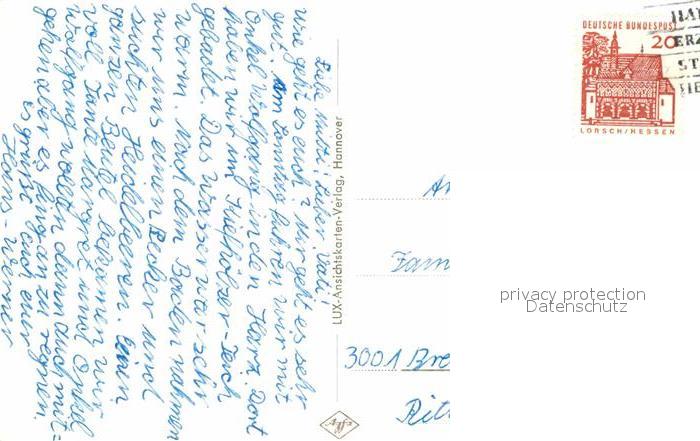 Liebe Mutti, lieber Vati,
wie geht es euch? Mir geht es sehr
gut. Am Sonntag fuhren wir mit
Onkel Wolfgang in den Harz. Dort
haben wir im Tiefhölzer-Teich
gebadet. Das Wasser war sehr
warm. Nach dem Baden nahmen
wir uns einen Becher und
suchten Heidelbeeren. Einen
ganzen Beutel bekamen wir
voll. Tante Margret und Onkel
Wolfgang wollen dann auch mit=
gehen aber es fing an zu regnen.
Es grüßt euch euer
Hans-Werner
LUX-Ansichtskarten-Verlag, Hannover
DEUTSCHE BUNDESPOST
20
LORSCH/HESSEN
HA
ERZ
ST
An
Fam
3001 Bre
Ritt
privacy protection
Datenschutz